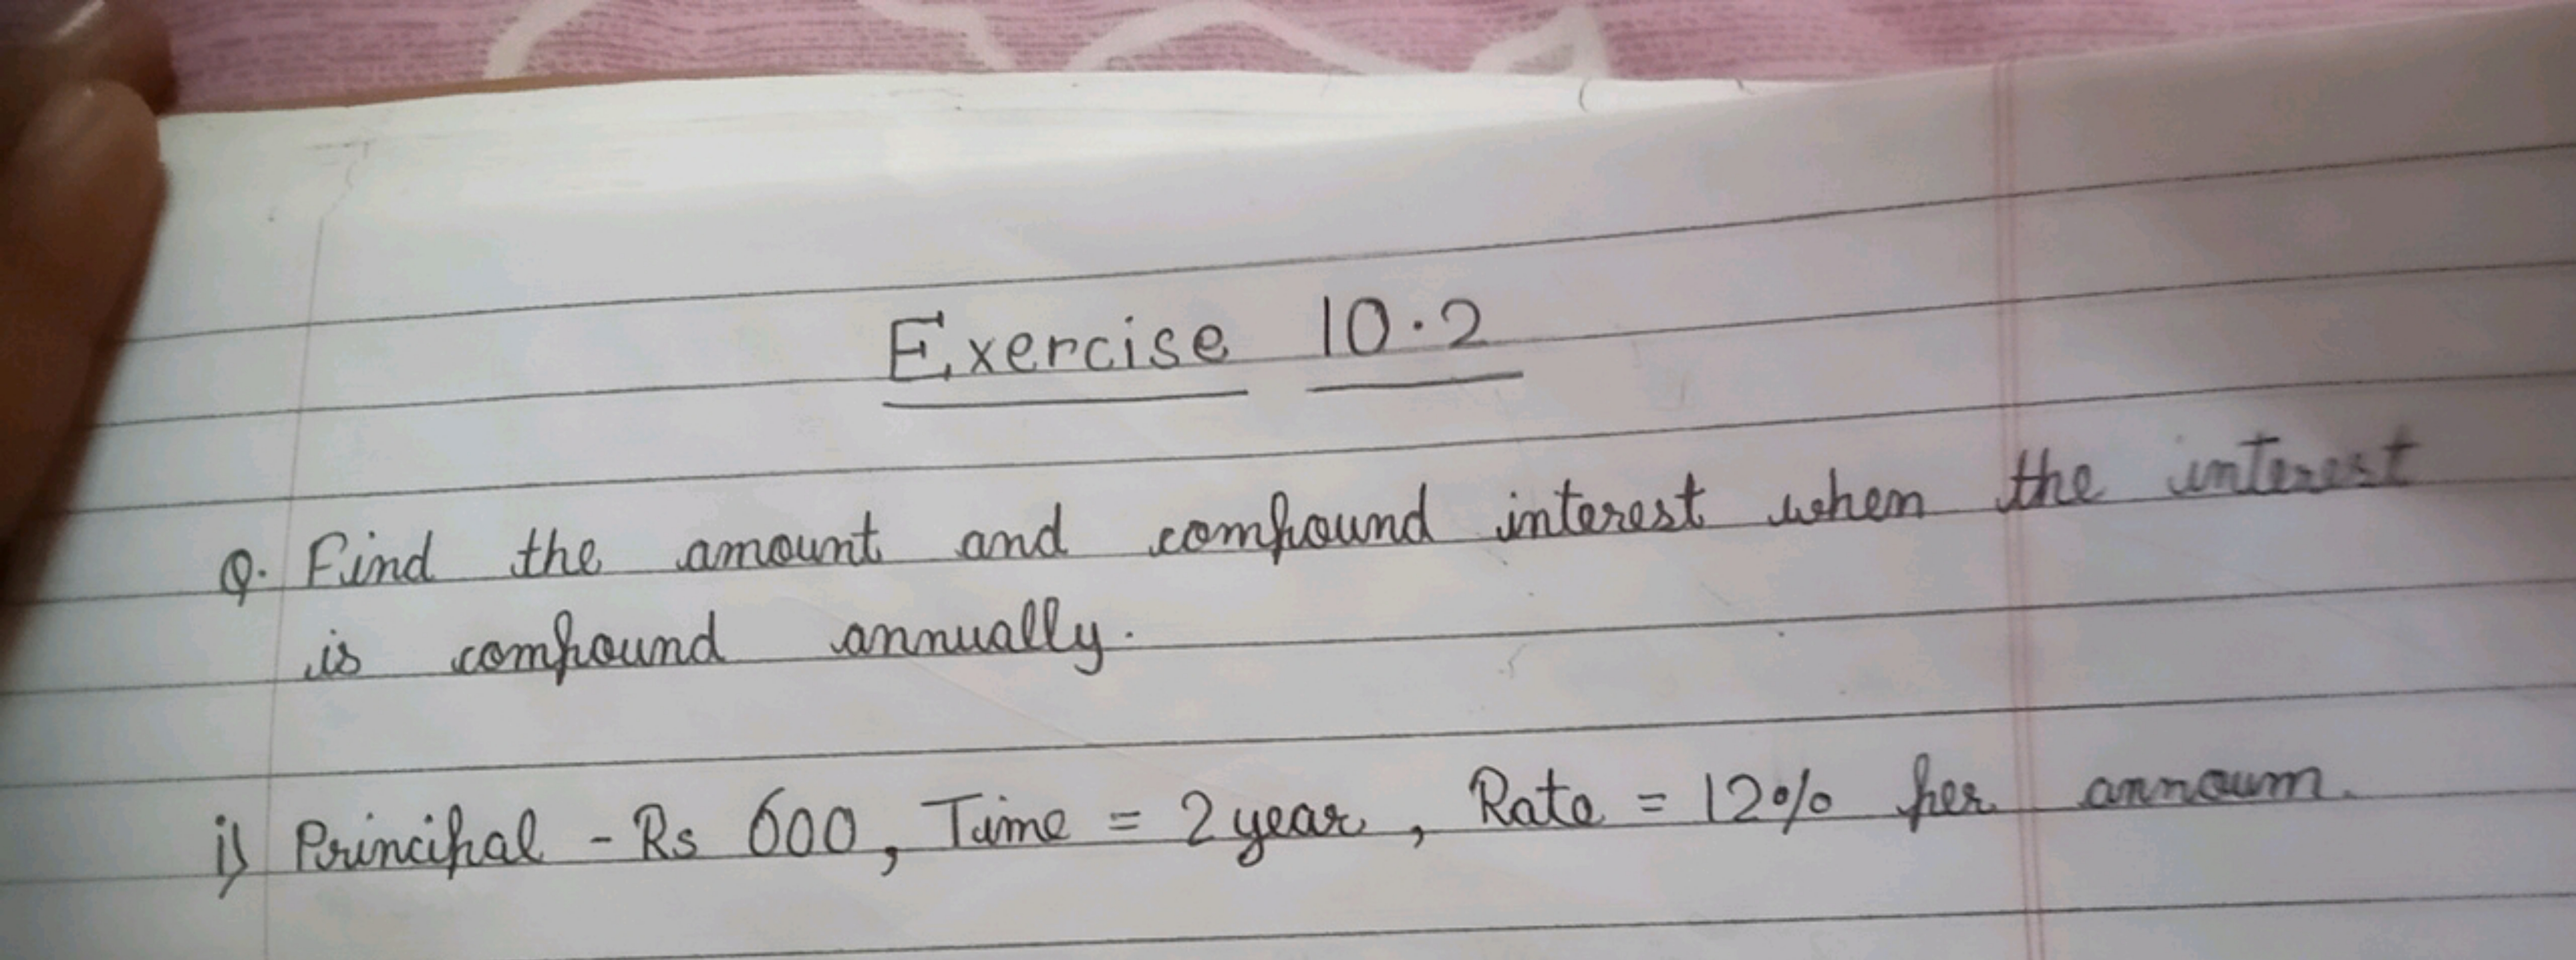 Exercise 10.2
Q. Find the amount and compound interest when the interest
is compound annually.
i) Principal - Rs 600, Time = 2 year, Rate = 12% per annoum.